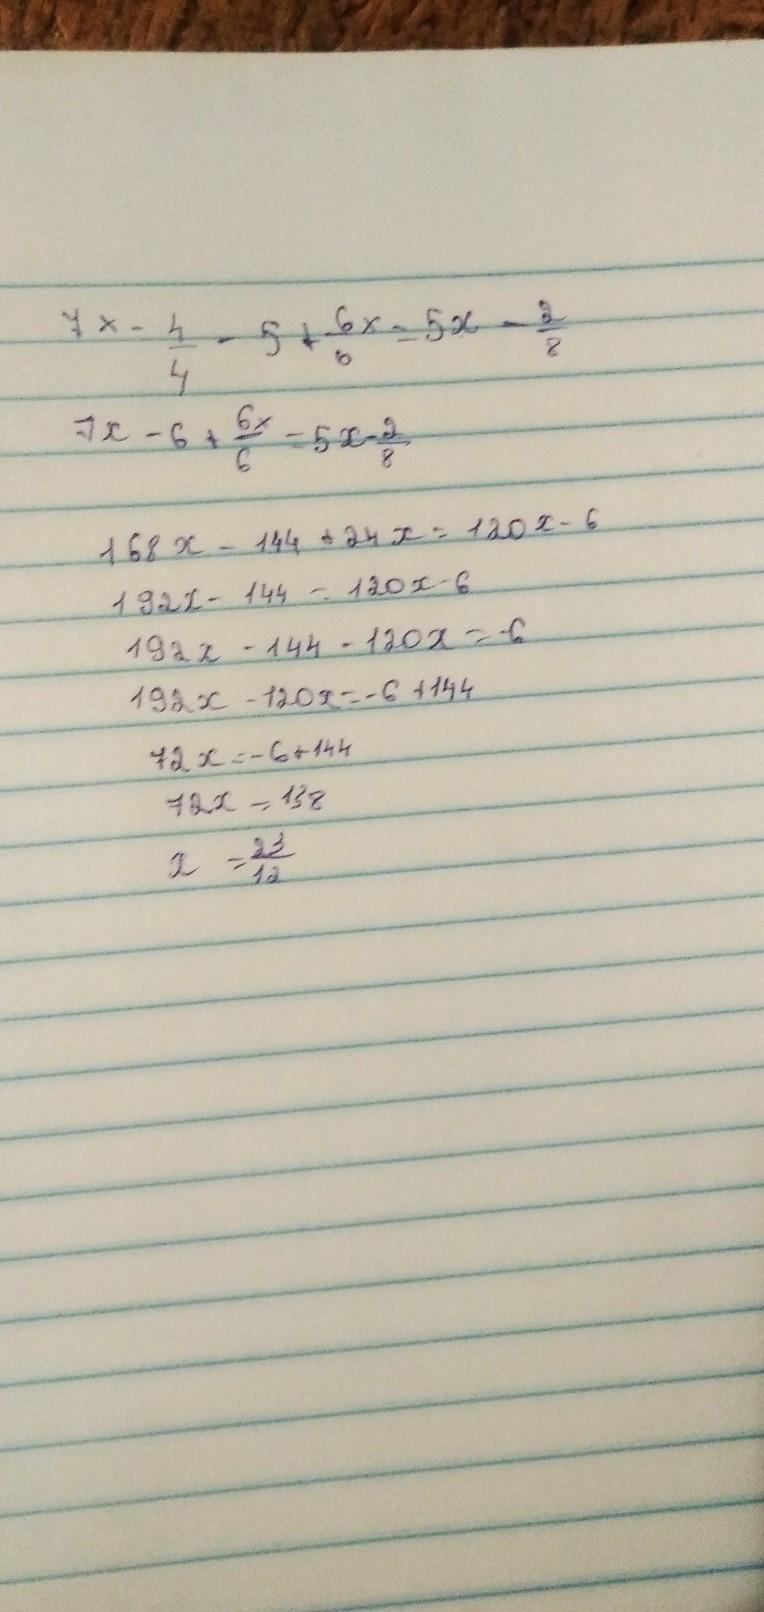 7x - 4/4 - 5 + 6x/6 = 5x - 2/8
7x - 6 + 6x/6 = 5x - 2/8
168x - 144 + 24x = 120x - 6
192x - 144 = 120x - 6
192x - 144 - 120x = -6
192x - 120x = -6 + 144
72x = -6 + 144
72x = 138
x = 23/12